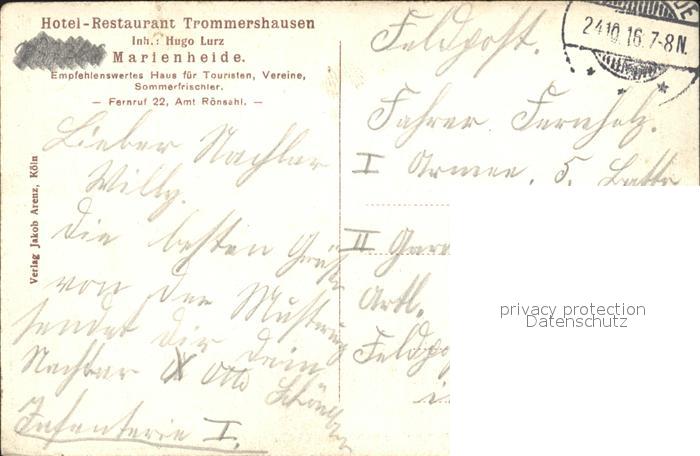 Hotel-Restaurant Trommershausen
Inh.: Hugo Lurz
Marienheide.
Empfehlenswertes Haus für Touristen, Vereine,
Sommerfrischler.
— Fernruf 22, Amt Rönsahl. —
Verlag Jakob Arenz, Köln
Lieber Nachbar
Willy.
Die besten Grüße
von der Musterung
sendet Dir Dein
Nachbar Otto
Infanterie I.
24.10.16.7-8N.
Feldpost.
Fahrer Fernholz.
I Armee. 5. Battr
II Gard
Artl.
Feldpo
privacy protection
Datenschutz